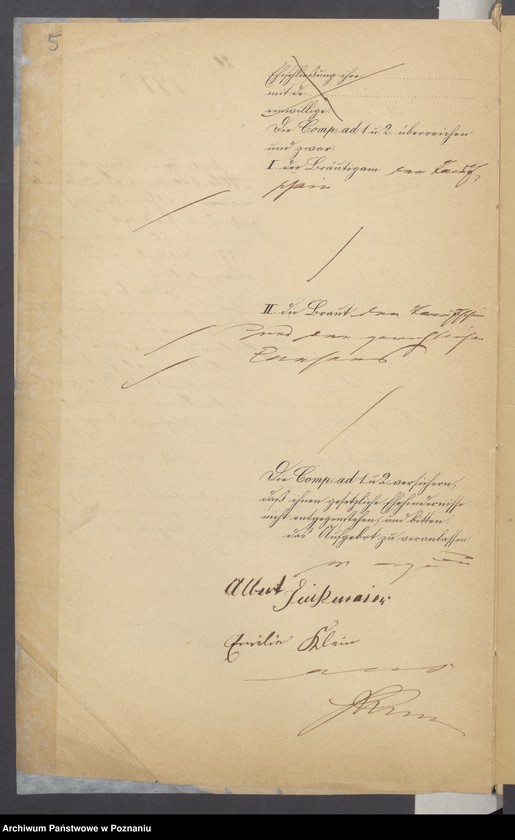 5
Eheschließung ihre
mit de
einwillige
Die Comp. ad 1 u 2. überreichen
und zwar:
I. der Bräutigam den Tauf-
schein
II. die Braut den Taufschein
und den gerichtlichen
Consens
Die Comp. ad 1 u 2. versichern,
daß ihnen gesetzliche Ehehindernisse
nicht entgegenstehen, und bitten
das Aufgebot zu veranlassen.
Albert
Emilie Klein
Archiwum Państwowe w Poznaniu